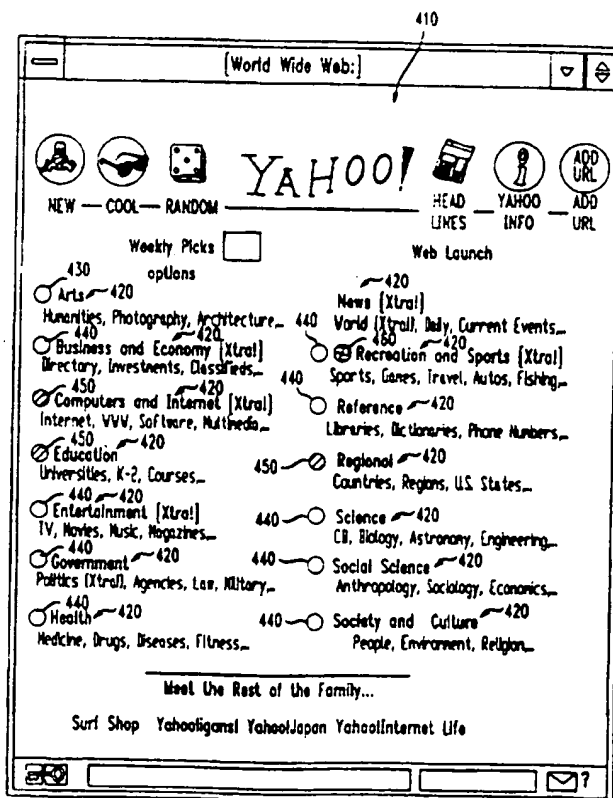 410
[World Wide Web:]
YAHOO!
ADD URL
NEW — COOL — RANDOM
HEAD LINES — YAHOO INFO — ADD URL
Weekly Picks
options
Web Launch
430
Arts 420
Humanities, Photography, Architecture...
440 420
Business and Economy [Xtra!]
Directory, Investments, Classifieds...
450 420
Computers and Internet [Xtra!]
Internet, WWW, Software, Multimedia...
450 420
Education
Universities, K-2, Courses...
440 420
Entertainment [Xtra!]
TV, Movies, Music, Magazines...
440
Government 420
Politics [Xtra!], Agencies, Law, Military...
440
Health 420
Medicine, Drugs, Diseases, Fitness...
420
News [Xtra!]
World [Xtra!], Daily, Current Events...
440 460 420
Recreation and Sports [Xtra!]
Sports, Games, Travel, Autos, Fishing...
440
Reference 420
Libraries, Dictionaries, Phone Numbers...
450 Regional 420
Countries, Regions, U.S. States...
440 Science 420
CB, Biology, Astronomy, Engineering...
440 Social Science 420
Anthropology, Sociology, Economics...
440 Society and Culture 420
People, Enviroment, Religion...
Meet the Rest of the Family...
Surf Shop Yahooligans! Yahoo!Japan Yahoo!Internet Life
?